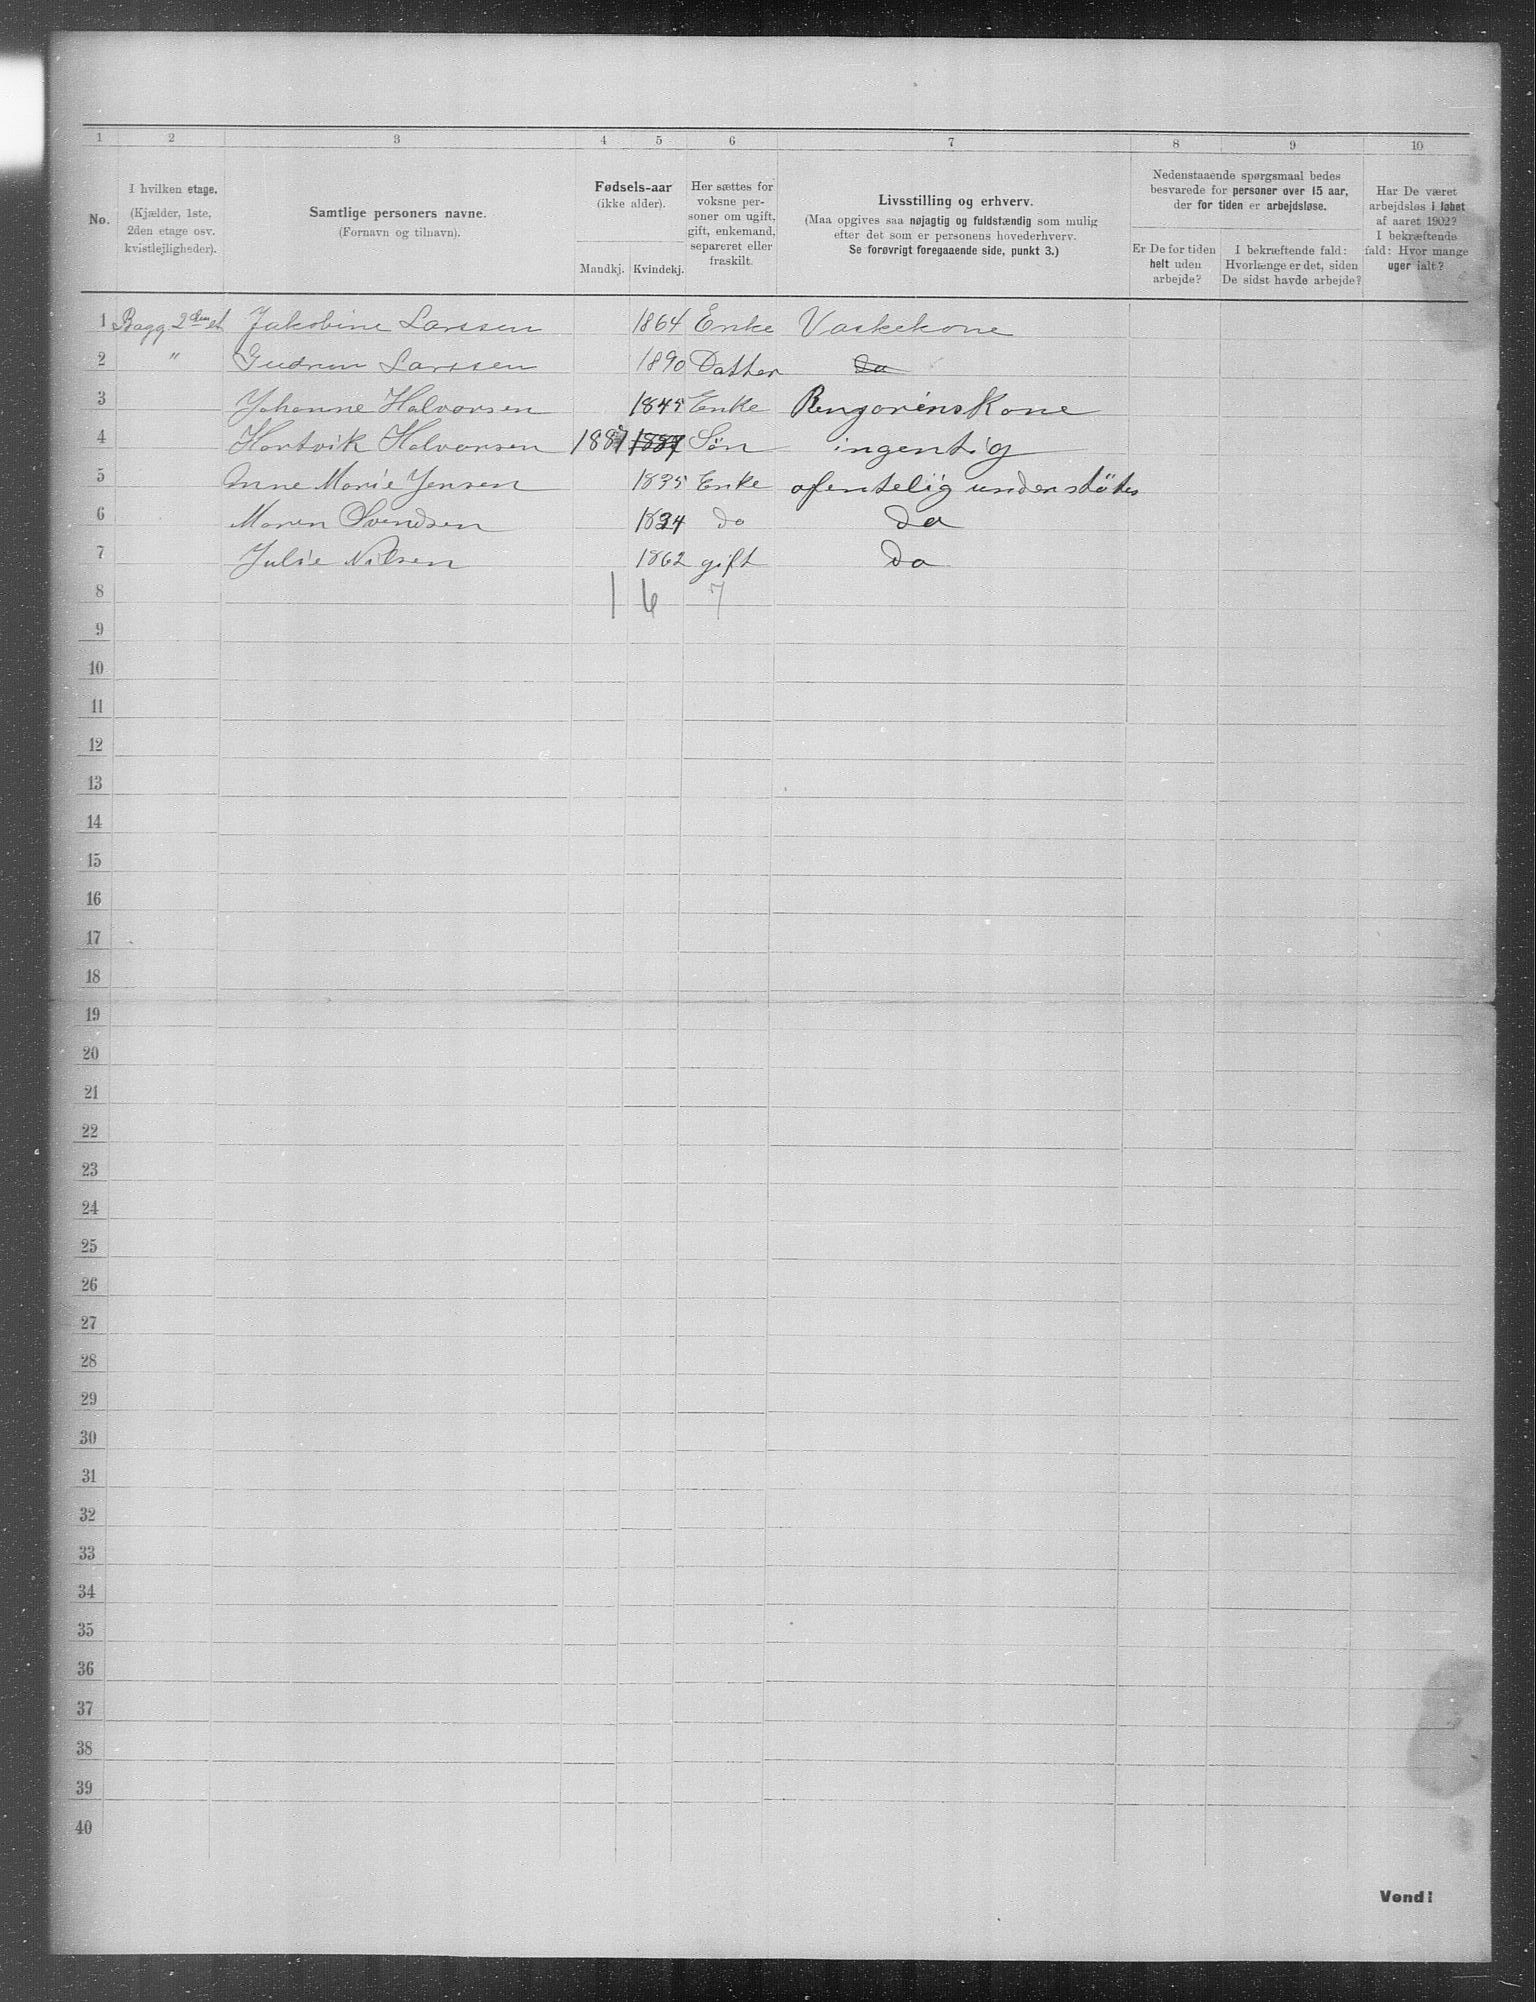 1 2 3 4 5 6 7 8 9 10
No.
I hvilken etage.
(Kjælder, 1ste,
2den etage osv.
kvistlejligheder).
Samtlige personers navne.
(Fornavn og tilnavn).
Fødsels-aar
(ikke alder).
Mandkj. Kvindekj.
Her sættes for
voksne per-
soner om ugift,
gift, enkemand,
separeret eller
fraskilt.
Livsstilling og erhverv.
(Maa opgives saa nøjagtig og fuldstændig som mulig
efter det som er personens hovederhverv.
Se forøvrigt foregaaende side, punkt 3.)
Nedenstaaende spørgsmaal bedes
besvarede for personer over 15 aar,
der for tiden er arbejdsløse.
Er De for tiden
helt uden
arbejde?
I bekræftende fald:
Hvorlænge er det, siden
De sidst havde arbejde?
Har De været
arbejdsløs i løbet
af aaret 1902?
I bekræftende
fald: Hvor mange
uger ialt?
1 Bagg 2den et Jakobine Larssen 1864 Enke Vaskekone
2 " Gudrun Larssen 1890 Datter Do
3 Johanne Halvorsen 1845 Enke Rengorinskone
4 Hartvik Halvorsen 1887 1887 Søn ingentig
5 Anne Marie Jensen 1835 Enke ofentelig understøtes
6 Maren Svendsen 1834 do Do
7 Julie Nilsen 1862 gift Do
8 1 6 7
9
10
11
12
13
14
15
16
17
18
19
20
21
22
23
24
25
26
27
28
29
30
31
32
33
34
35
36
37
38
39
40
Vend!